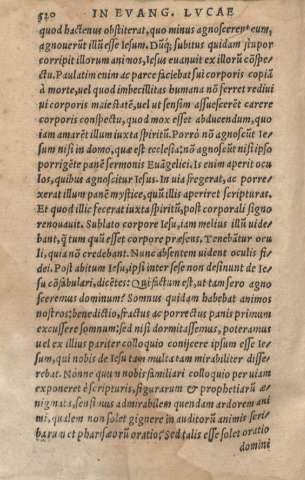 520 IN EVANG. LVCAE
quod hactenus obstiterat, quo minus agnoscerent eum,
agnouerūt illū esse Iesum. Dūq; subitus quidam stupor
corripit illorum animos, Iesus euanuit ex illorū cōspe-
ctu. Paulatim enim ac parce faciebat sui corporis copiā
à morte, uel quod imbecillitas humana nō ferret rediui
ui corporis maiestatē, uel ut sensim assuescerēt carere
corporis conspectu, quod mox esset abducendum, quo
iam amarēt illum iuxta spiritū. Porrò nō agnoscūt Ie-
sum nisi in domo, quæ est ecclesia: nō agnoscūt nisi ipso
porrigēte panē sermonis Euāgelici. Is enim aperit ocu
los, quibus agnoscitur Iesus. In uia fregerat, ac porre-
xerat illum panē mystice, quū illis aperiret scripturas.
Et quod illic fecerat iuxta spiritū, post corporali signo
renouauit. Sublato corpore Iesu, iam melius illū uide-
bant, q̄ tum quū esset corpore præsens, Tenebātur ocu
li, quia nō credebant. Nunc absentem uident oculis fi-
dei. Post abitum Iesu, ipsi inter sese non desinunt de Ie-
su cōfabulari, dicētes: Qui factum est, ut tam sero agno
sceremus dominum? Somnus quidam habebat animos
nostros: benedictio, fractus ac porrectus panis primum
excussere somnum: sed nisi dormitassemus, poteramus
uel ex illius pariter colloquio conijcere ipsum esse Ie-
sum, qui nobis de Iesu tam multa tam mirabiliter disse-
rebat. Nonne quum nobis familiari colloquio per uiam
exponeret è scripturis, figurarum & prophetiarū æ-
nigmata, sensimus admirabilem quendam ardorem ani
mi, qualem non solet gignere in auditorū animis scri-
barum et pharisæorū oratio? Sed talis esse solet oratio
domini